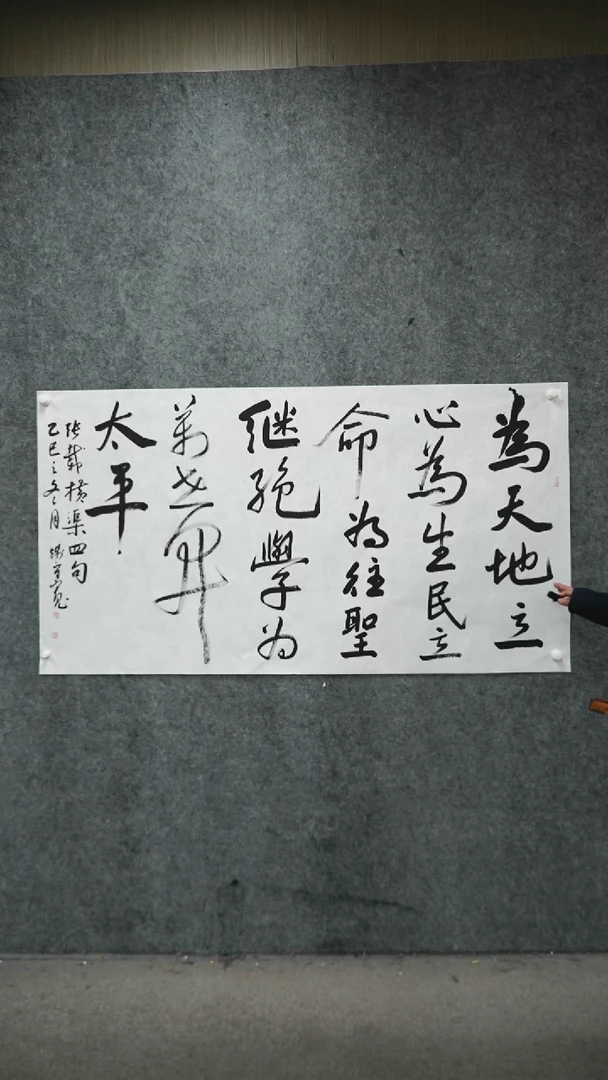 為天地立
心為生民立
命為往聖
继絕學为
萬世開
太平
张載橫渠四句
乙巳之冬月